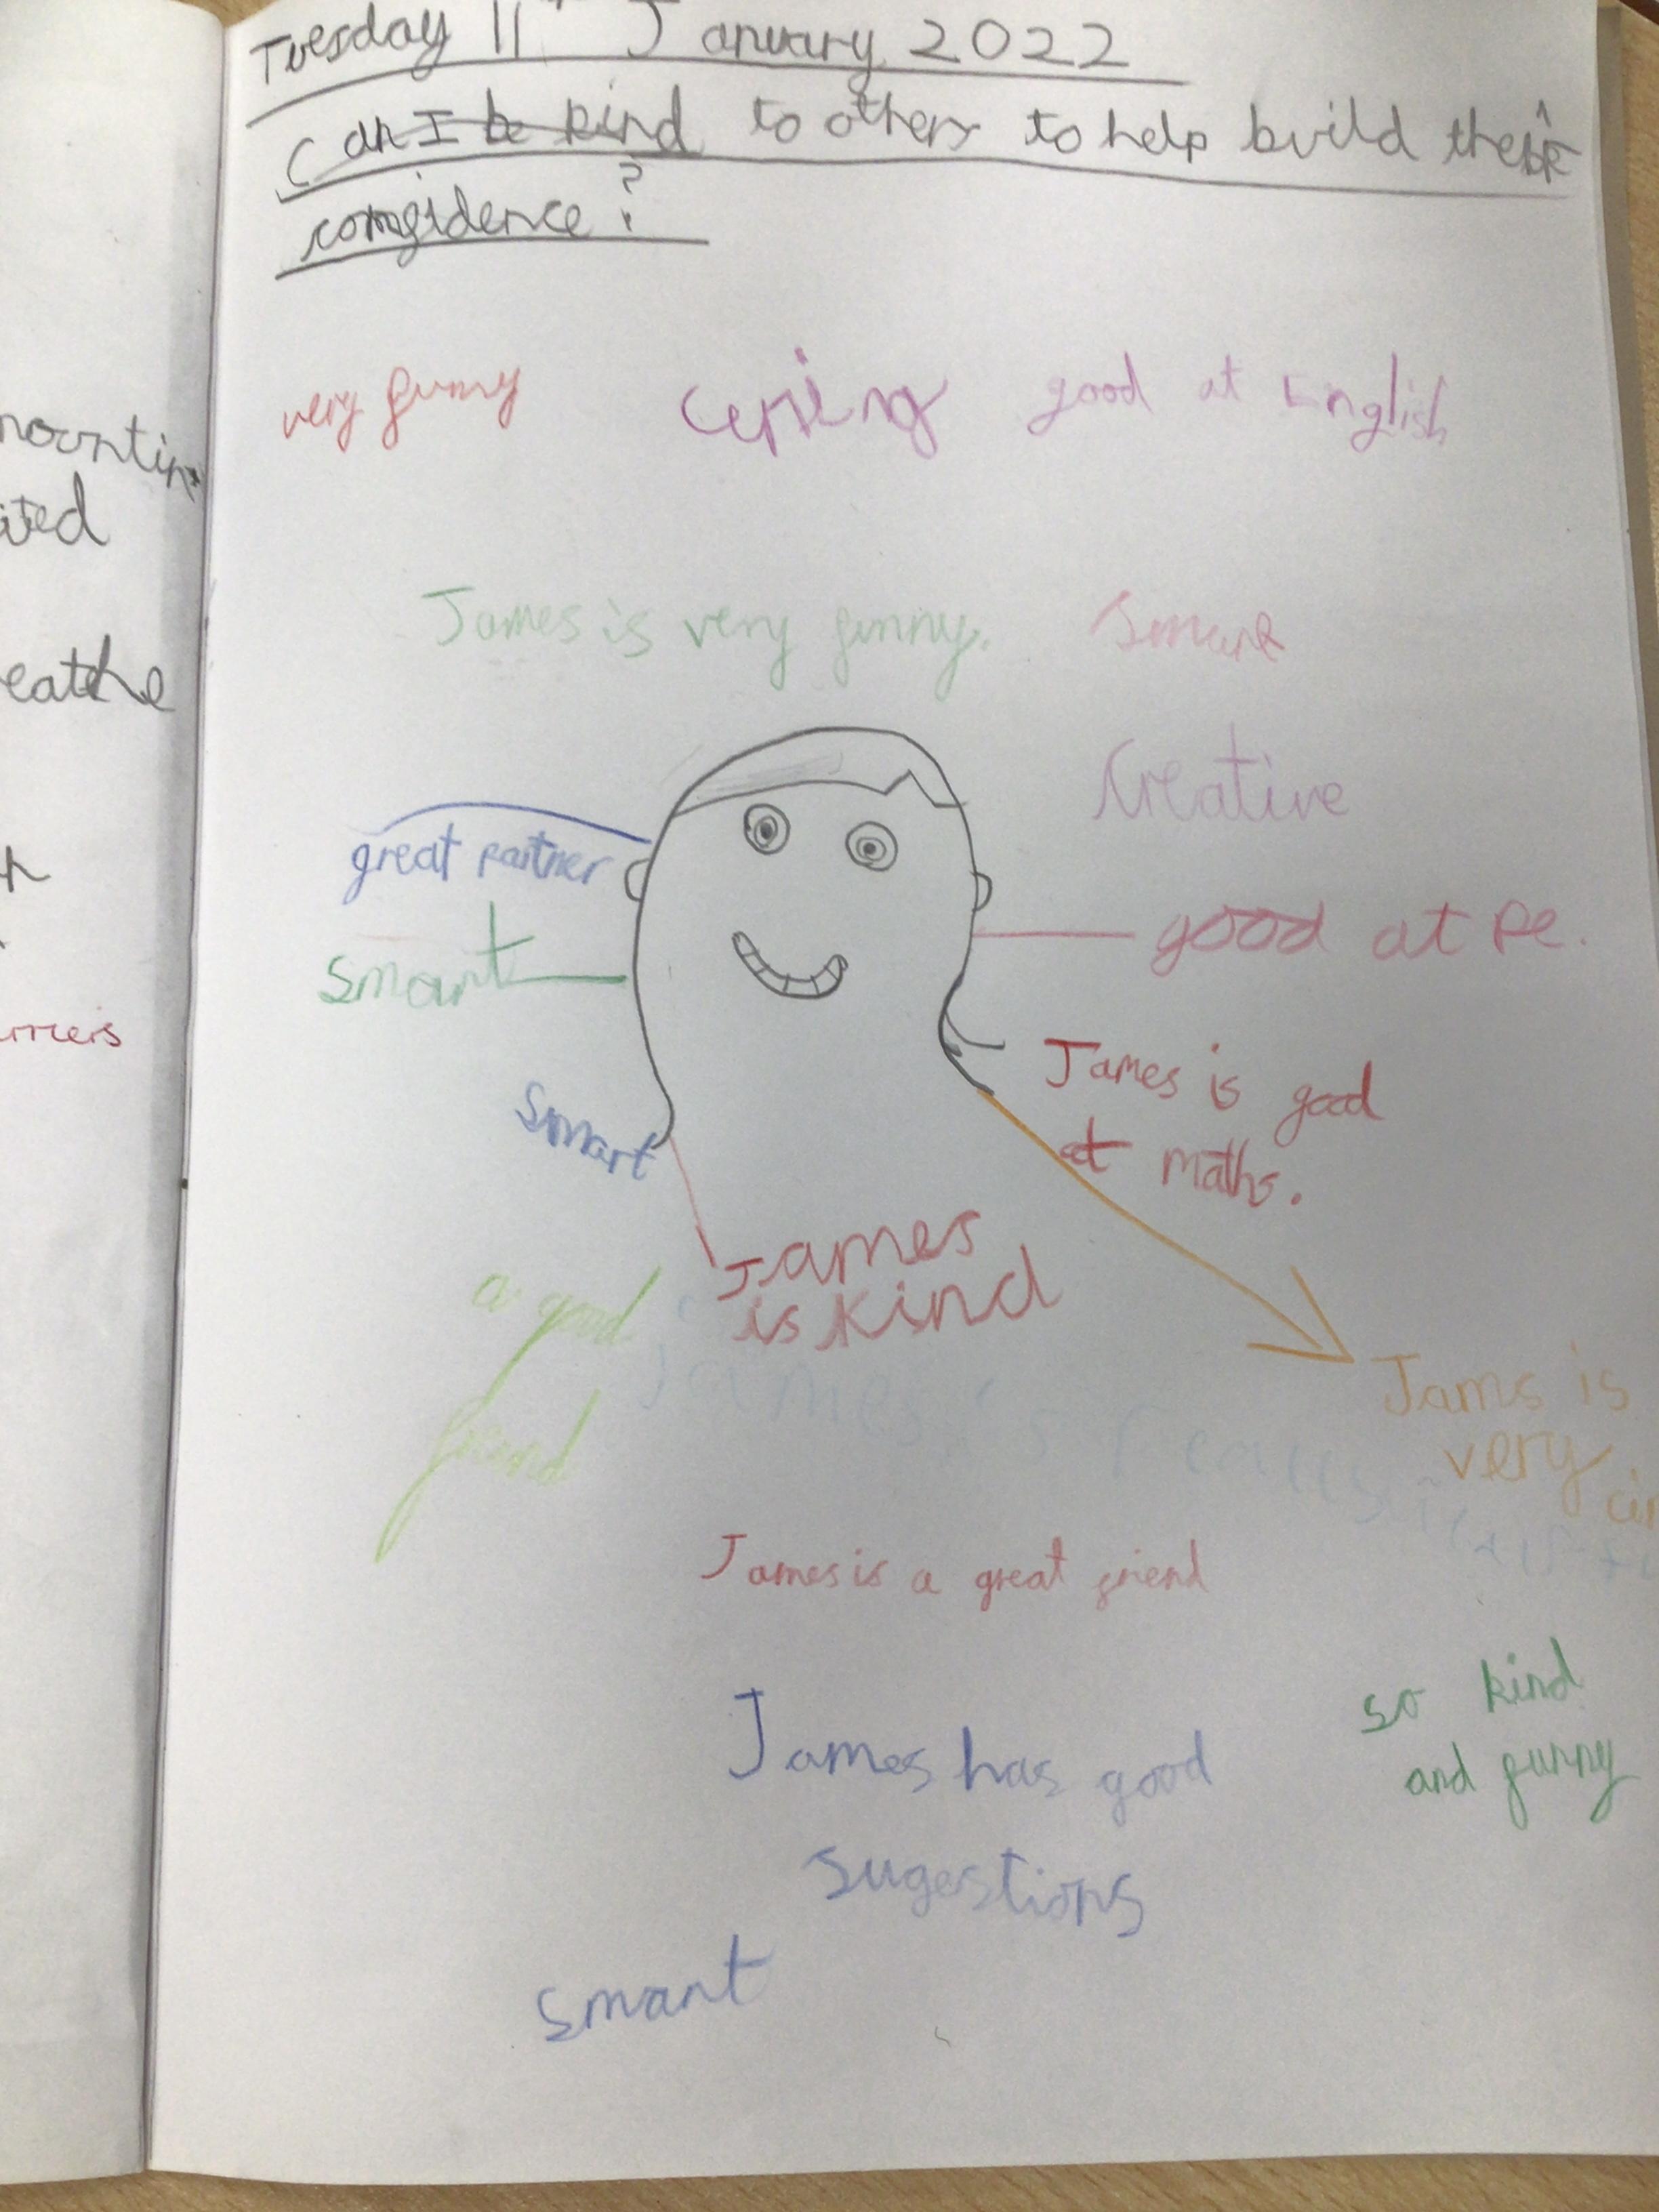 Tuesday 11th January 2022
Can I be kind to others to help build their
comfidence?
very funny
good at English
James is very funny.
Smart
Creative
great partner
good at Pe.
Smart
James is good
at maths.
Smart
James
is kind
a good
friend
James is really
Jams is
very
James is a great friend
so kind
and funny
James has good
sugestions
smart
nountin
ated
eathe
rriers